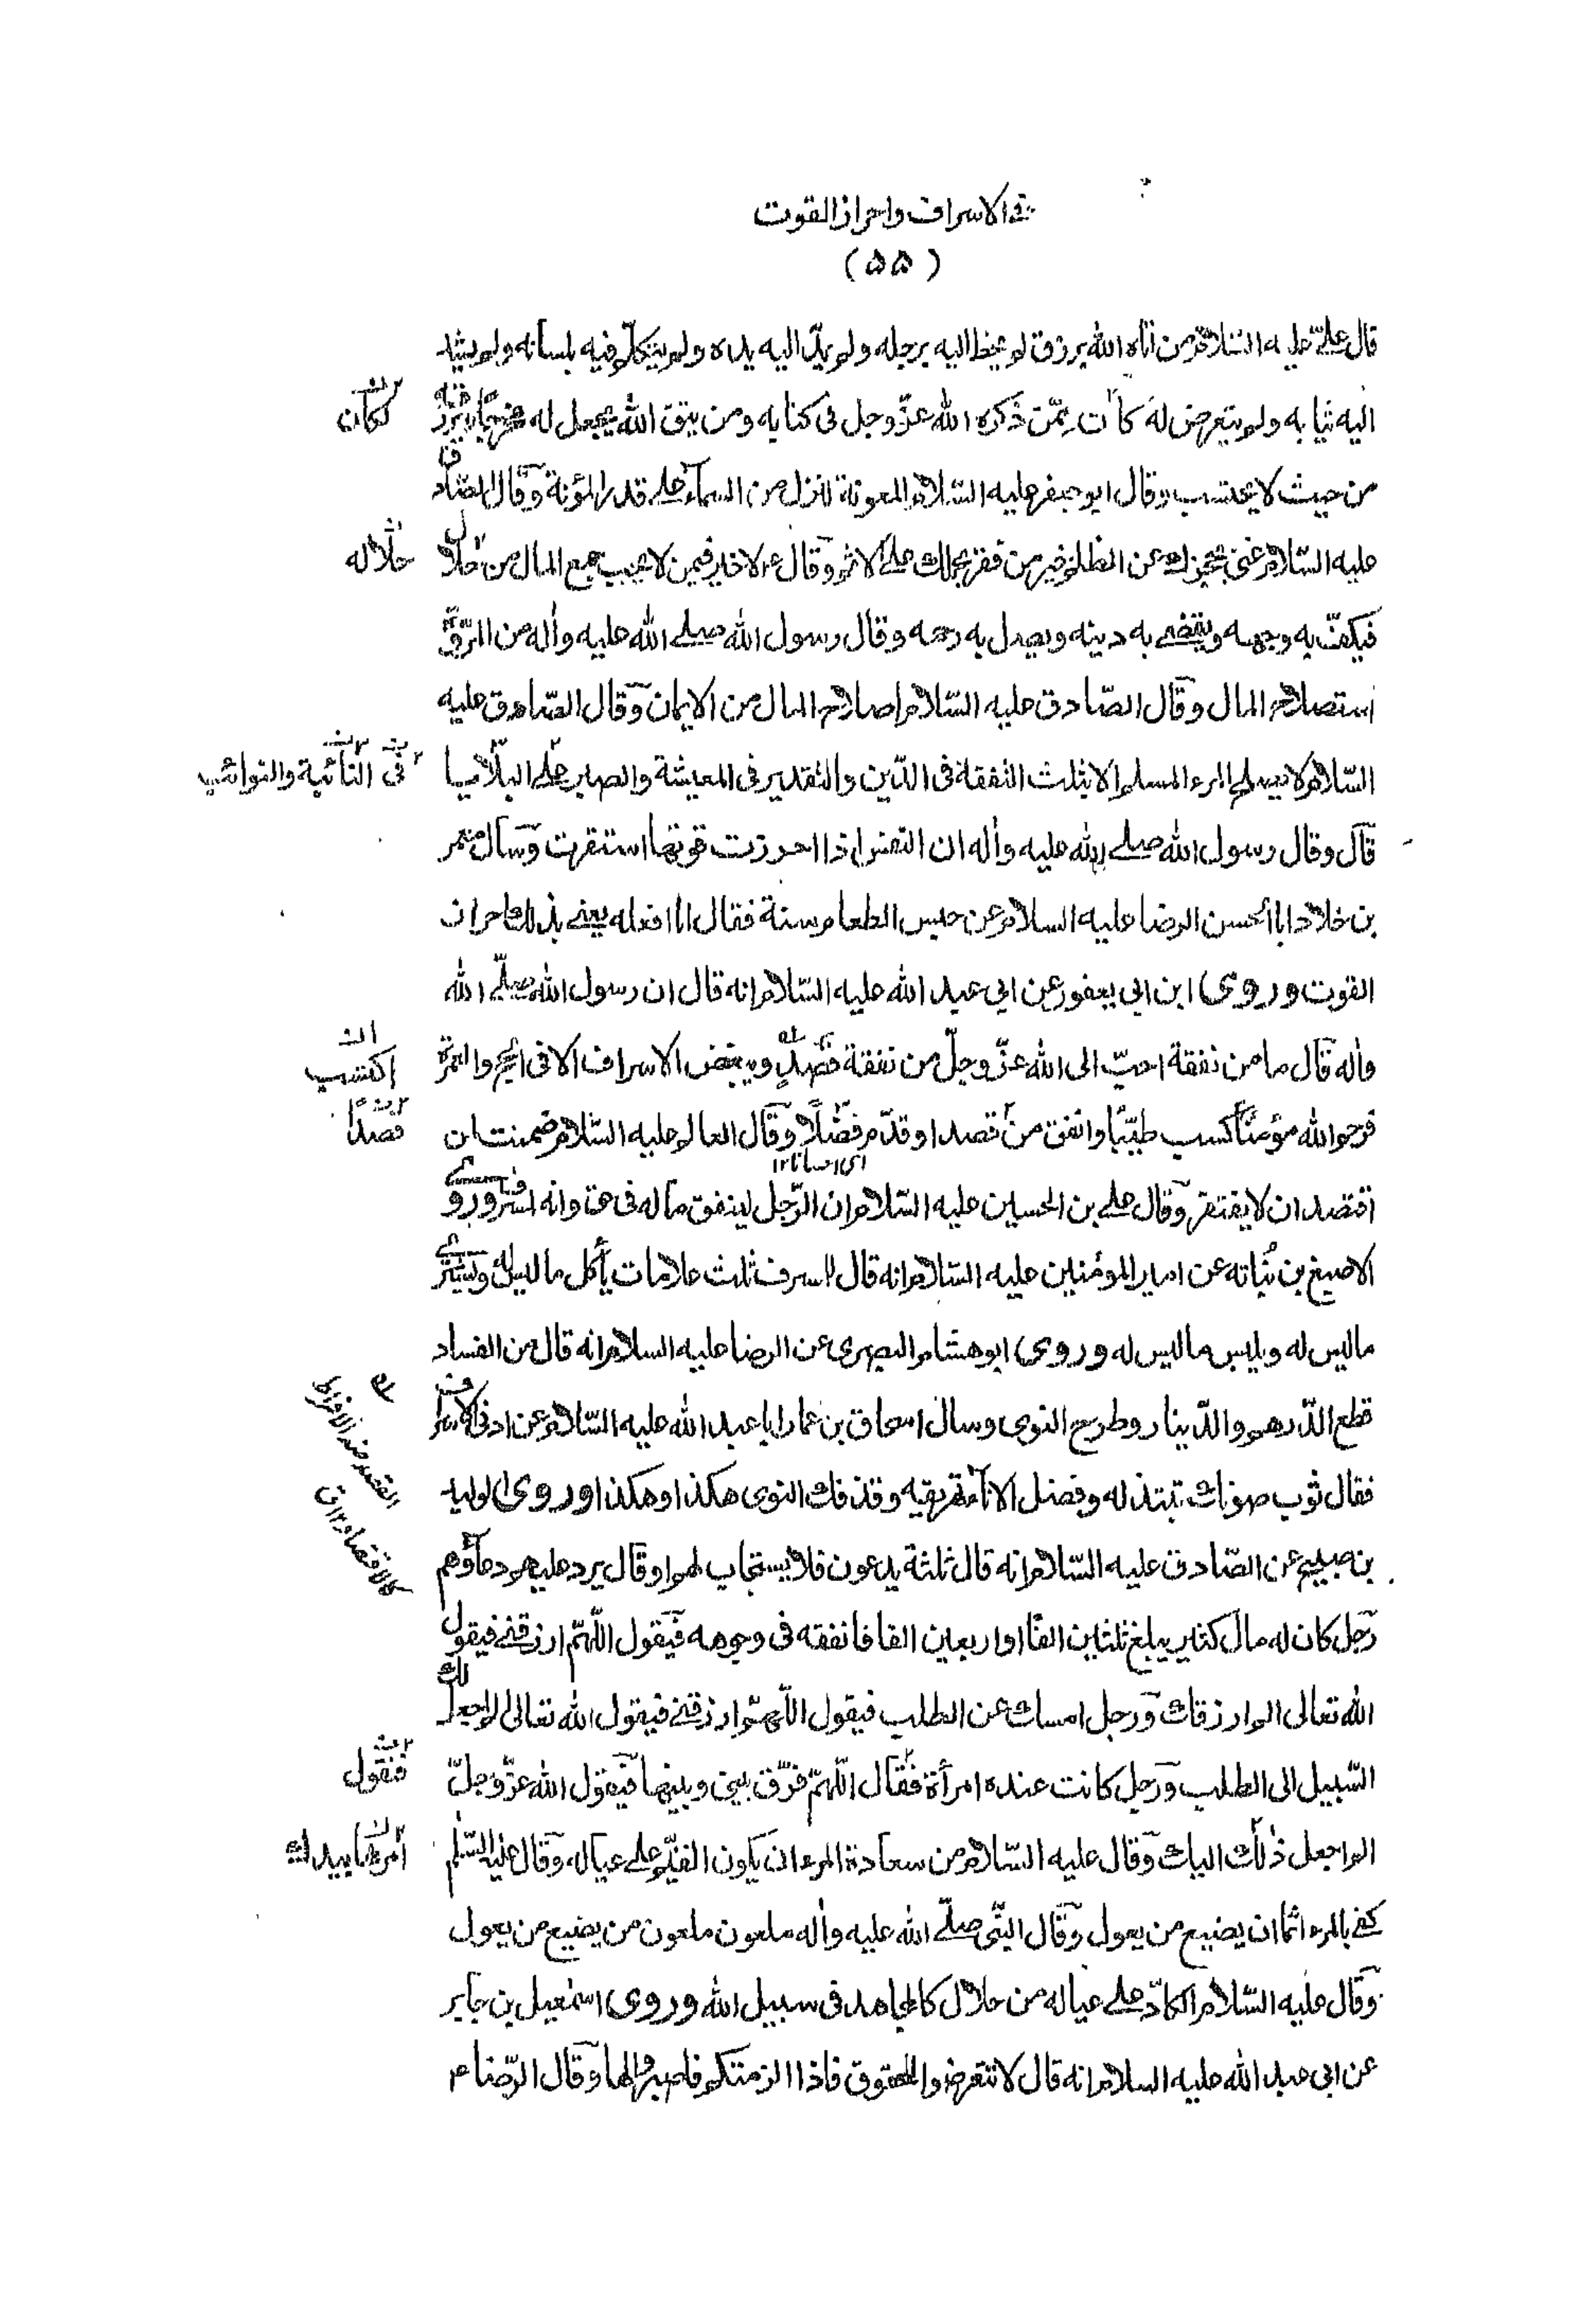 في الاسراف واحراز القوت
(۵۵)
قال علي عليه السلام من اتاه الله برزق لم يخط اليه برجله ولم يمدّ اليه يده ولم يتكلّم فيه بلسانه ولم يشد
اليه ثيابه ولم يتعرض له كان ممّن ذكره الله عزّ وجل في كتابه ومن يتق الله يجعل له مخرجًا ويرزقه
لكان
من حيث لا يحتسب وقال ابو جعفر عليه السّلام المعونة تنزل من السمآء على قدر المؤنة وقال الصّادق
عليه السّلام غنى يحجزك عن الظلم خير من فقر يحملك على الاثم وقال ع لا خير فيمن لا يحب جمع المال من حلال
حلاله
فيكفّ به وجهه ويقضي به دينه ويصل به رحمه وقال رسول الله صلى الله عليه واٰله من المروّة
استصلاح المال وقال الصّادق عليه السّلام اصلاح المال من الايمان وقال الصّادق عليه
السّلام لا يصلح المرء المسلم الا بثلث التفقه في الدّين والتقدير في المعيشة والصبر على البلايا
في النآئبة والنوائب
قال وقال رسول الله صلى الله عليه واٰله ان النفس اذا احرزت قوتها استقرت وسأل معمر
بن خلاد ابا الحسن الرضا عليه السلام عن حبس الطعام سنة فقال انا افعله يعني بذلك احراز
القوت وروى ابن ابي يعفور عن ابي عبد الله عليه السّلام انه قال ان رسول الله صلّى الله
واٰله قال ما من نفقة احبّ الى الله عزّ وجلّ من نفقة قصدٍ ويبغض الاسراف الا في الحج والعمرة
اكتسب
فرحم الله مؤمنًا كسب طيّبًا وانفق من قصد او قدّم فضلًا وقال العالم عليه السّلام ضمنت لمن
قصدًا
اقتصد ان لا يفتقر وقال علي بن الحسين عليه السّلام ان الرّجل لينفق ماله في حق وانه لمسرف وروى
الاصبغ بن نُباته عن امير المؤمنين عليه السّلام انه قال للمسرف ثلث علامات يأكل ما ليس له ويشتري
ما ليس له ويلبس ما ليس له وروى ابو هشام البصري عن الرضا عليه السلام انه قال من الفساد
قطع الدّرهم والدّينار وطرح النوى وسأل اسحاق بن عمار ابا عبد الله عليه السّلام عن ادنى الاسراف
القصد ضد الافراط
كالاقتصاد ۱۲ق
فقال ثوب صونك تبتذله وفضل الانآء تهريقه وقذفك النوى هكذا وهكذا وروى الوليد
بن صبيح عن الصّادق عليه السّلام انه قال ثلثة يدعون فلا يستجاب لهم او قال يرد عليهم دعاؤهم
رَجل كان له مال كثير يبلغ ثلثين الفًا او اربعين الفا فانفقه في وجوهه فيقول اللّهمّ ارزقني فيقول
الله تعالى الم ارزقك ورجل امسك عن الطلب فيقول اللّهمّ ارزقني فيقول الله تعالى الم اجعل لك
السّبيل الى الطلب ورجل كانت عنده امرأة فقال اللّهمّ فرّق بيني وبينها فيقول الله عزّ وجلّ
فيقول
الم اجعل ذٰلك اليك وقال عليه السّلام من سعادة المرء ان يكون القيّم على عياله، وقال عليه السّلم
امرها بيدك
كفى بالمرء اثما ان يضيع من يعول وقال النّبي صلّى الله عليه واٰله ملعون ملعون من يضيع من يعول
وقال عليه السّلام الكادّ على عياله من حلال كالمجاهد في سبيل الله وروى اسمٰعيل بن جابر
عن ابي عبد الله عليه السلام انه قال لا تتعرضوا للحقوق فاذا الزمتكم فاصبروا لها وقال الرّضا ع